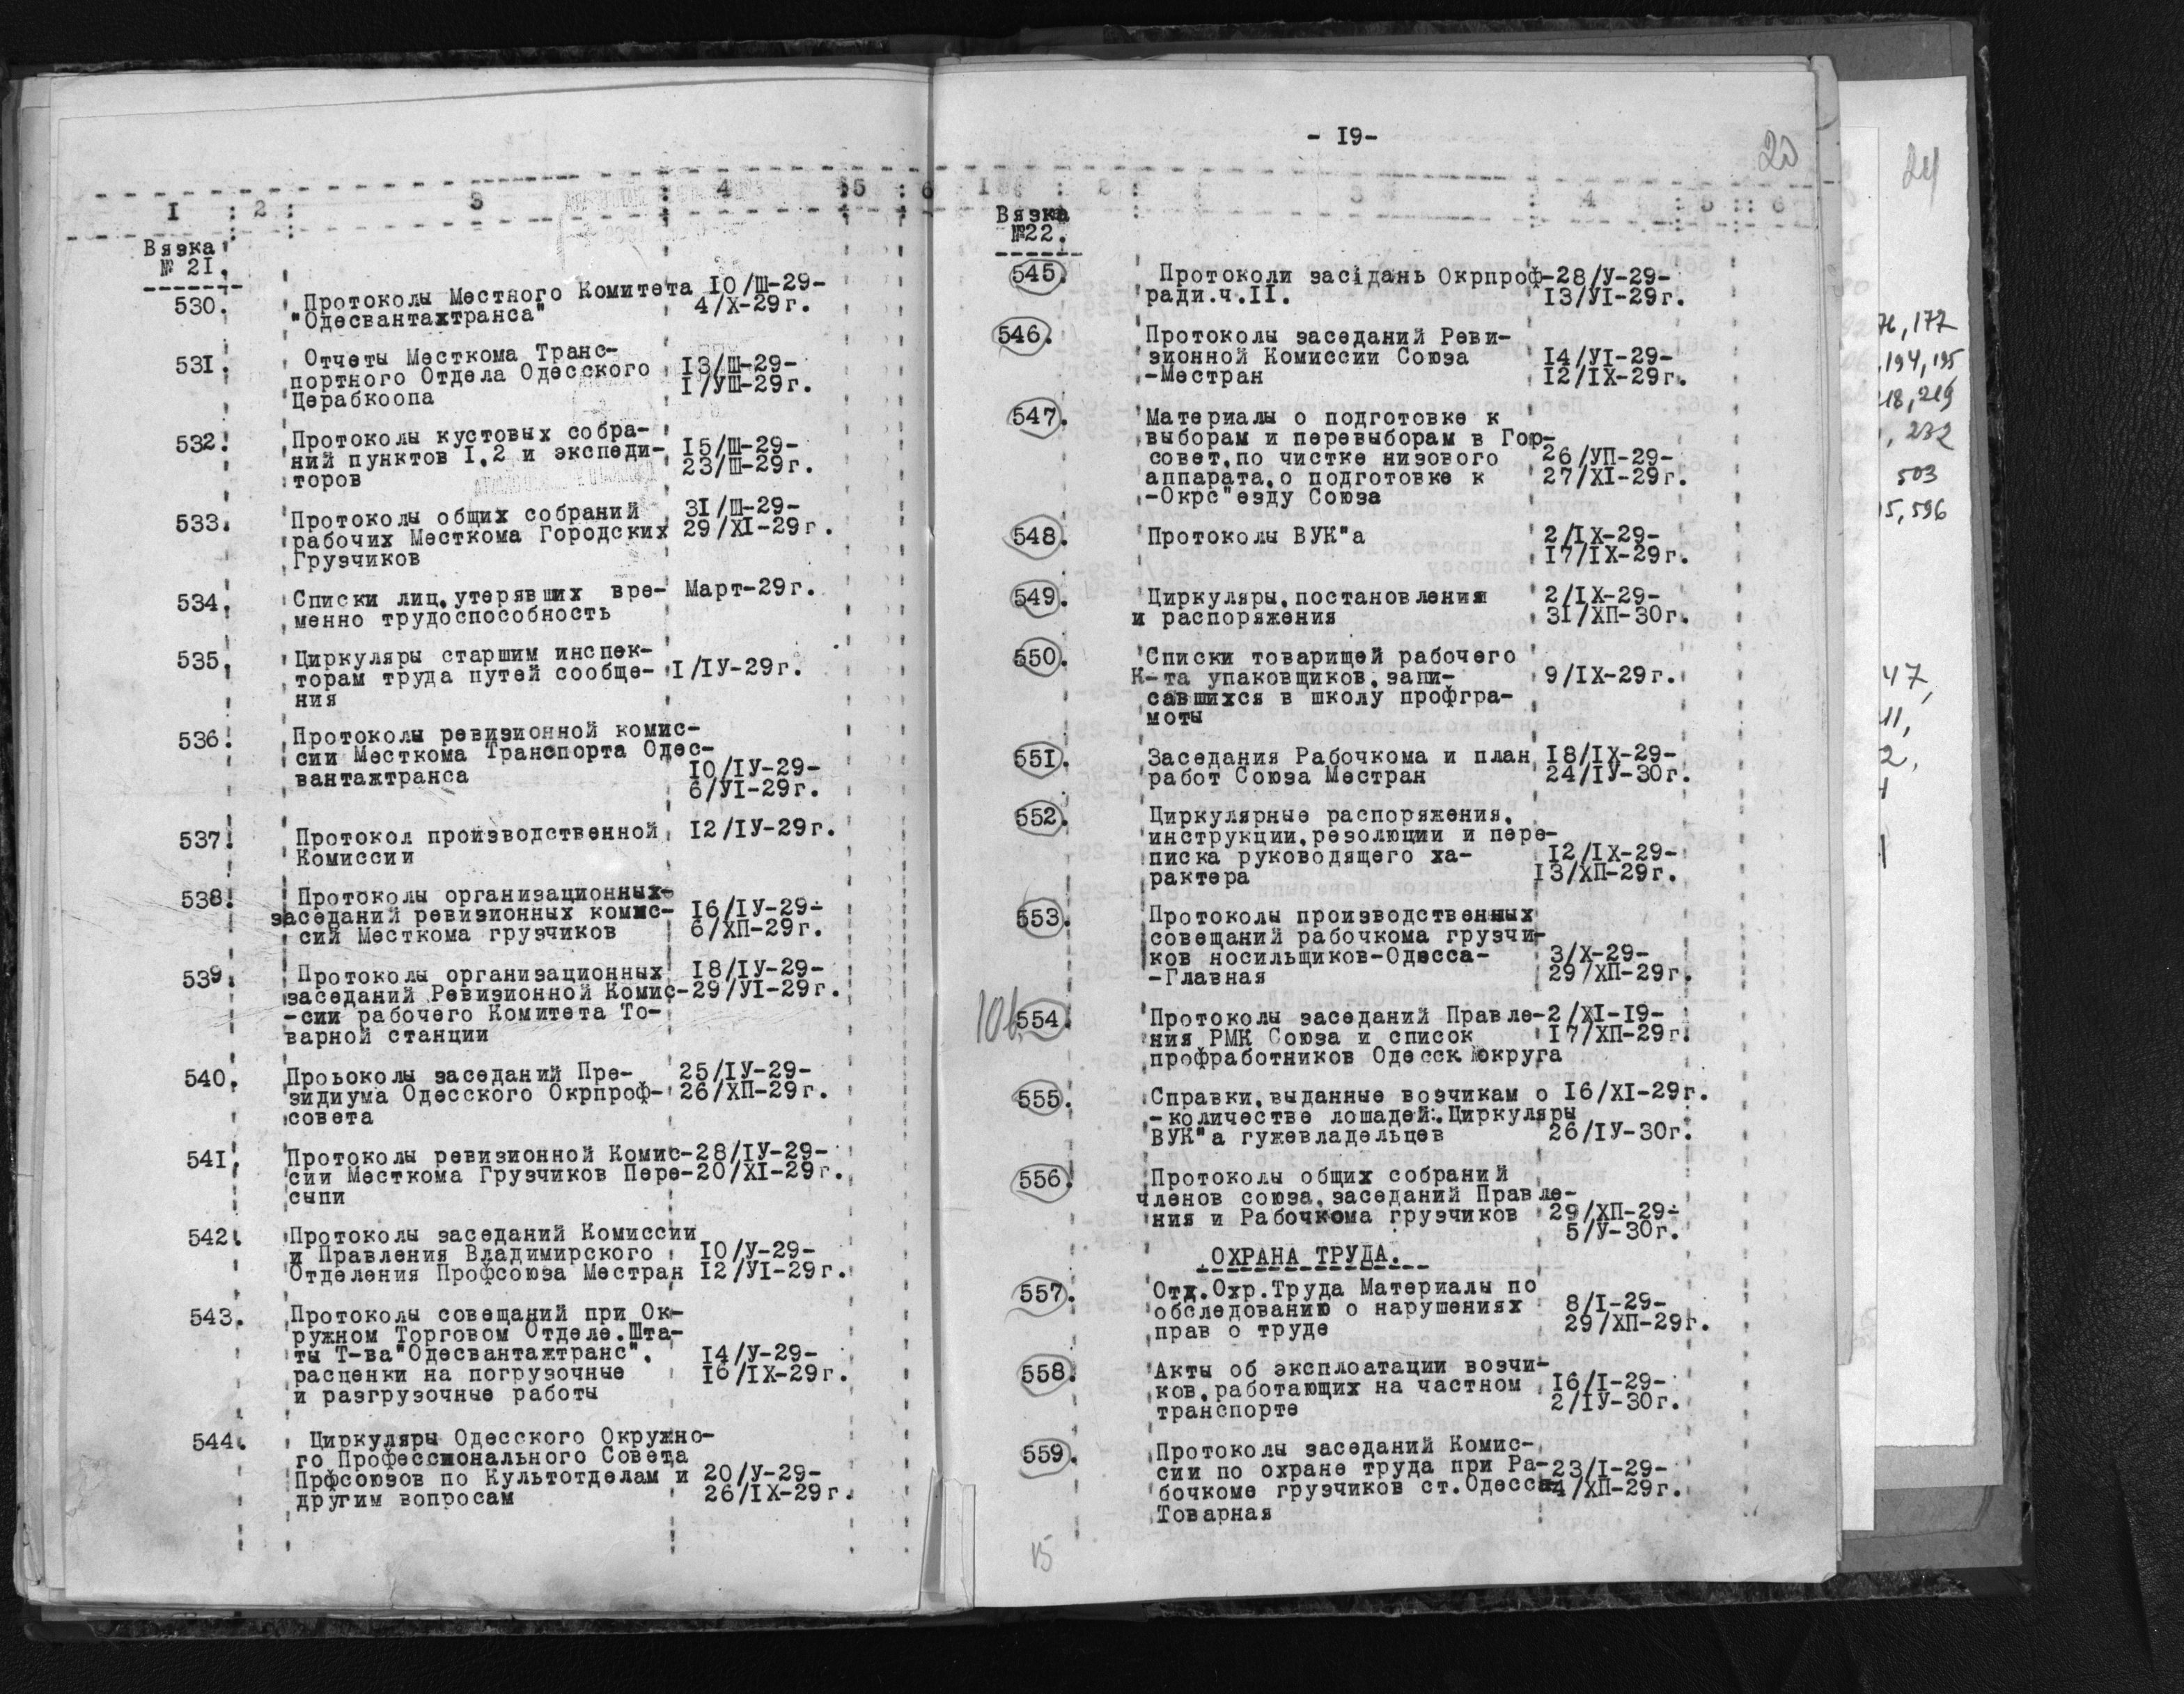 I : 2 : 3 : 4 : 5 : 6
Вязка
№ 21.
530. Протоколы Местного Комитета 10/Ш-29-
"Одесвантажтранса" 4/Х-29г.
531. Отчеты Месткома Транс-
портного Отдела Одесского 13/Ш-29-
Церабкоопа 1/УШ-29г.
532. Протоколы кустовых собра-
ний пунктов I,2 и экспеди- 15/Ш-29-
торов 23/Ш-29г.
533. Протоколы общих собраний 31/Ш-29-
рабочих Месткома Городских 29/XI-29г.
Грузчиков
534. Списки лиц,утерявших вре- Март-29г.
менно трудоспособность
535. Циркуляры старшим инспек-
торам труда путей сообще- I/IУ-29г.
ния
536. Протоколы ревизионной комис-
сии Месткома Транспорта Одес-
вантажтранса 10/IУ-29-
6/УI-29г.
537. Протокол производственной 12/IУ-29г.
Комиссии
538. Протоколы организационных-
заседаний ревизионных комис- 16/IУ-29-
сий Месткома грузчиков 6/ХП-29г.
539. Протоколы организационных 18/IУ-29-
заседаний Ревизионной Комис-29/УI-29г.
-сии рабочего Комитета То-
варной станции
540. Проьоколы заседаний Пре- 25/IУ-29-
зидиума Одесского Окрпроф- 26/ХП-29г.
совета
541. Протоколы ревизионной Комис-28/IУ-29-
сии Месткома Грузчиков Пере-20/XI-29г.
сыпи
542. Протоколы заседаний Комиссии
и Правления Владимирского 10/У-29-
Отделения Профсоюза Местран 12/УI-29г.
543. Протоколы совещаний при Ок-
ружном Торговом Отделе.Шта-
ты Т-ва"Одесвантажтранс", 14/У-29-
расценки на погрузочные 16/IX-29г.
и разгрузочные работы
544. Циркуляры Одесского Окружно-
го Профессионального Совета
Прфсоюзов по Культотделам и 20/У-29-
другим вопросам 26/IX-29г.
- 19-
20
I : 2 : 3 : 4 : 5 : 6
Вязка
№22.
545. Протоколи засідань Окрпроф-28/У-29-
ради.ч.II. 13/УI-29г.
546. Протоколы заседаний Реви-
зионной Комиссии Союза 14/УI-29-
-Местран 12/IX-29г.
547. Материалы о подготовке к
выборам и перевыборам в Гор-
совет,по чистке низового 26/УП-29-
аппарата,о подготовке к 27/XI-29г.
-Окрс"езду Союза
548. Протоколы ВУК"а 2/IX-29-
17/IX-29г.
549. Циркуляры,постановления 2/IX-29-
и распоряжения 31/ХП-30г.
550. Списки товарищей рабочего
К-та упаковщиков,запи- 9/IX-29г.
савшихся в школу профгра-
моты
551. Заседания Рабочкома и план 18/IX-29-
работ Союза Местран 24/IУ-30г.
552. Циркулярные распоряжения,
инструкции,резолюции и пере-
писка руководящего ха- 12/IX-29-
рактера 13/ХП-29г.
553. Протоколы производственных
совещаний рабочкома грузчи-
ков носильщиков-Одесса- 3/Х-29-
-Главная 29/ХП-29г.
554. Протоколы заседаний Правле-2/XI-19-
ния РМК Союза и список 17/ХП-29г.
профработников Одесск округа
555. Справки,выданные возчикам о 16/XI-29г.
-количестве лошадей.Циркуляры
ВУК"а гужевладельцев 26/IУ-30г.
556. Протоколы общих собраний
членов союза,заседаний Правле-
ния и Рабочкома грузчиков 29/ХП-29-
5/У-30г.
ОХРАНА ТРУДА.
557. Отд.Охр.Труда Материалы по
обследованию о нарушениях 8/I-29-
прав о труде 29/ХП-29г.
558. Акты об эксплоатации возчи-
ков,работающих на частном 16/I-29-
транспорте 2/IУ-30г.
559. Протоколы заседаний Комис-
сии по охране труда при Ра-23/I-29-
бочкоме грузчиков ст.Одесса-4/ХП-29г.
Товарная
15
24
76, 177
194, 195
218, 219
, 232
503
5, 596
47,
11,
2,